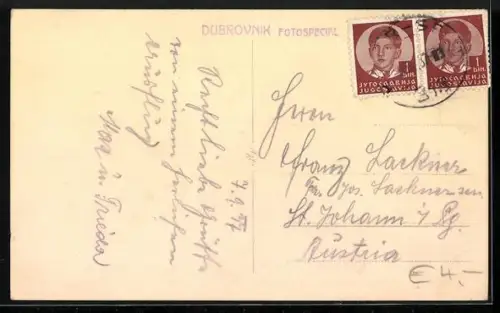 DUBROVNIK FOTOSPECIJAL
7.9.37
Recht liebe Grüße
von einem herrlichen
Ausflug
Max u. Frieda
1 DIN.
ЈУГОСЛАВИЈА
JUGOSLAVIJA
1 DIN.
ЈУГОСЛАВИЈА
JUGOSLAVIJA
Herrn
Franz Lackner
Jos. Lackner sen.
St. Johann i/Pg.
Austria
€ 4.-